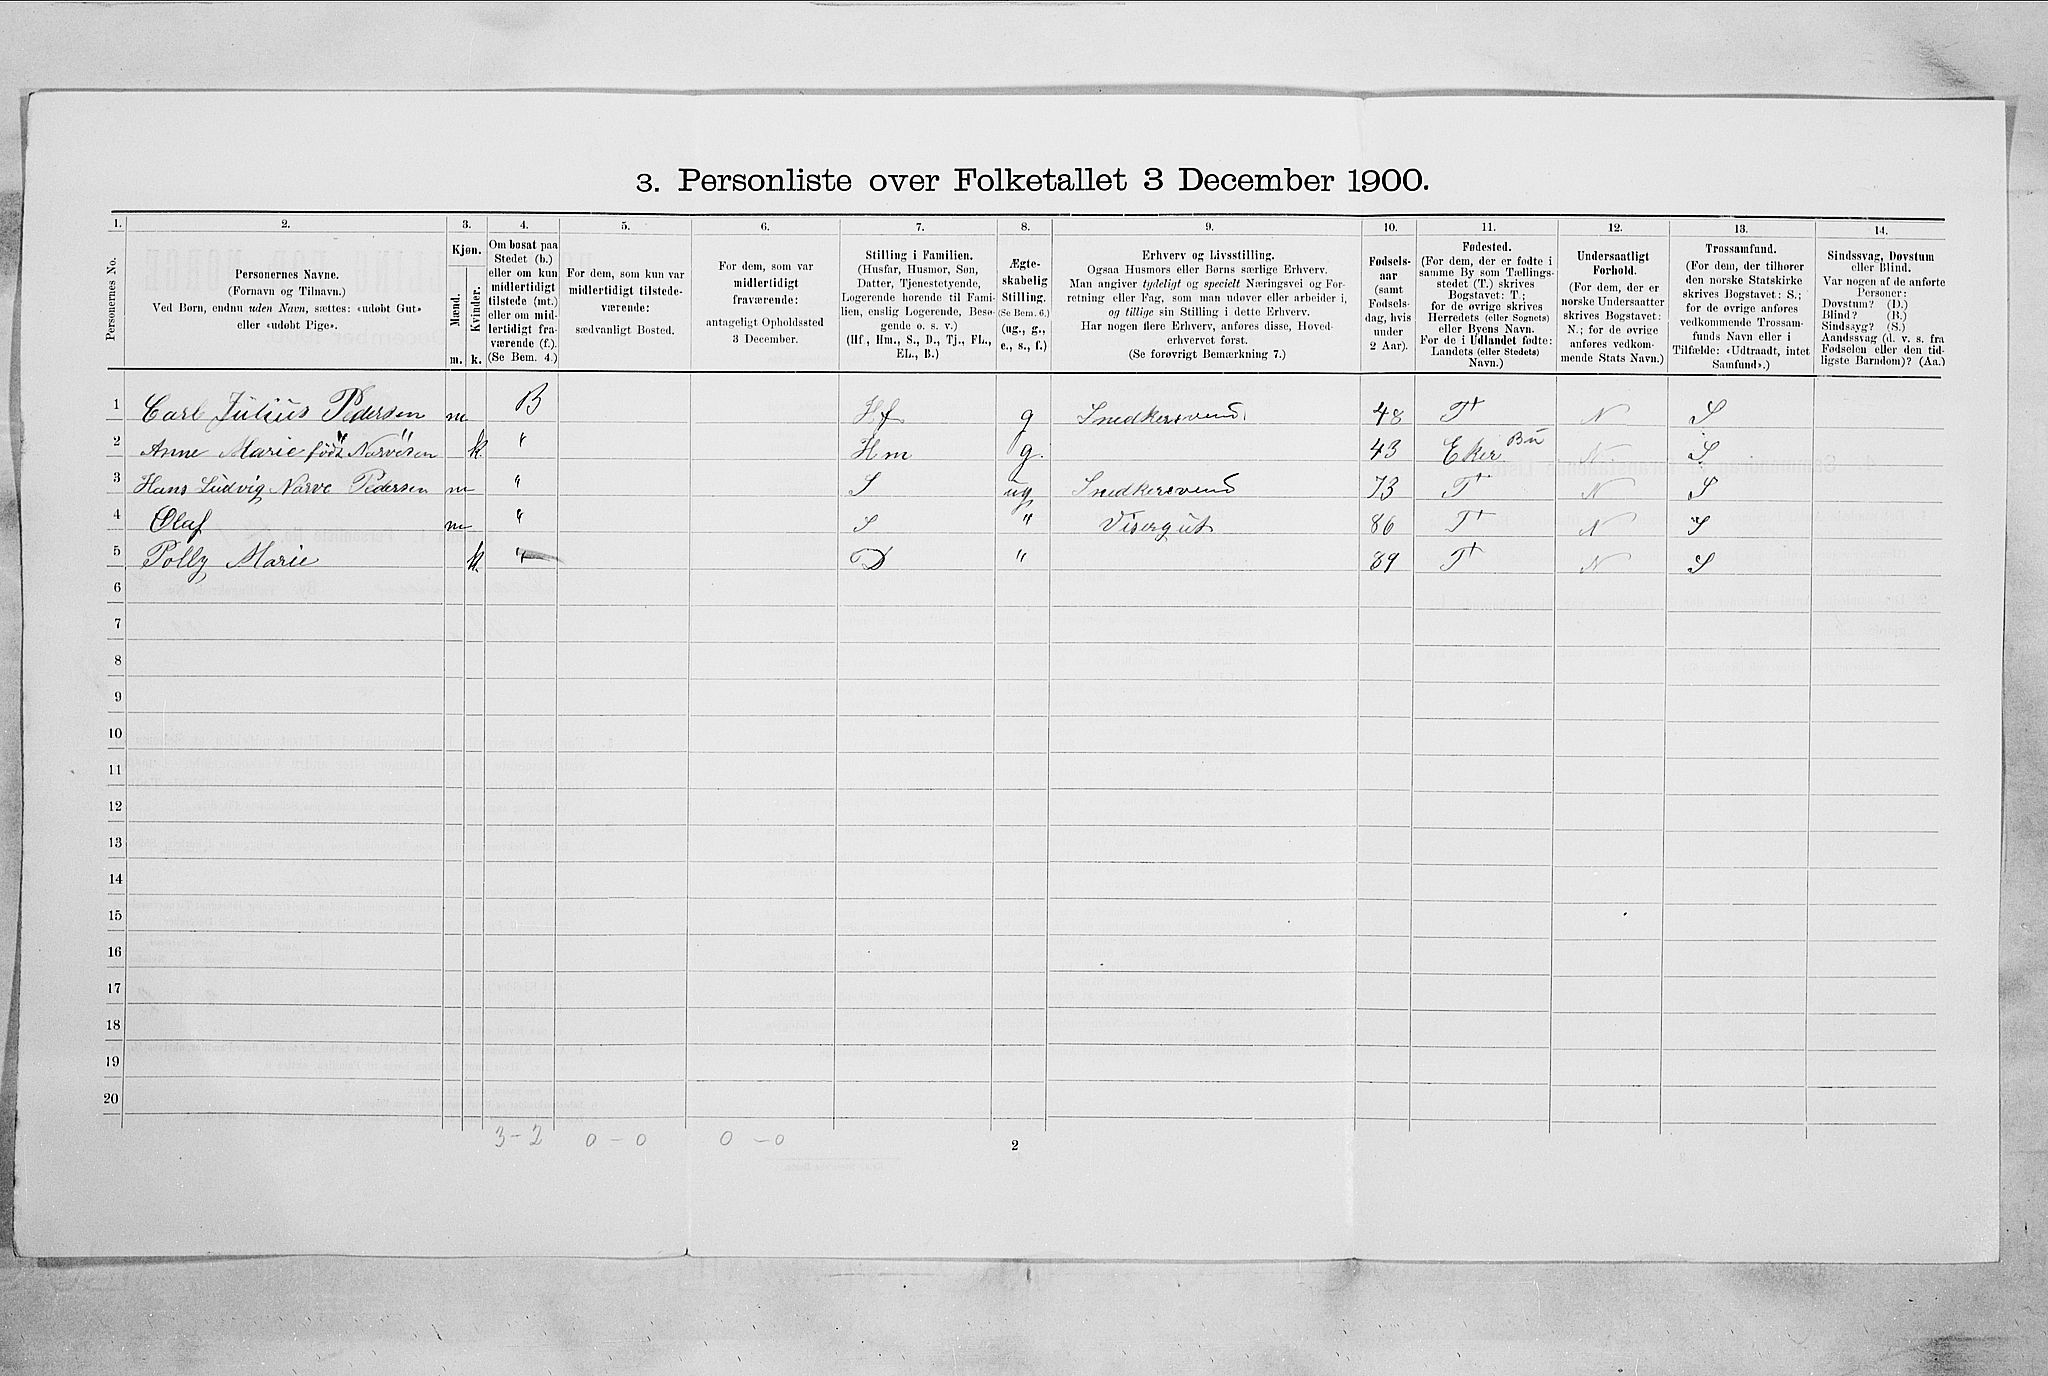 3. Personliste over Folketallet 3 December 1900.
1. 2. 3. 4. 5. 6. 7. 8. 9. 10. 11. 12. 13. 14.
Personernes No.
Personernes Navne.
(Fornavn og Tilnavn.)
Ved Børn, endnu uden Navn, sættes: «udøbt Gut»
eller «udøbt Pige».
Kjøn.
Mænd.
Kvinder.
m. k.
Om bosat paa
Stedet (b.)
eller om kun
midlertidigt
tilstede (mt.)
eller om mid-
lertidigt fra-
værende (f.).
(Se Bem. 4.)
For dem, som kun var
midlertidigt tilstede-
værende:
sædvanligt Bosted.
For dem, som var
midlertidigt
fraværende:
antageligt Opholdssted
3 December.
Stilling i Familien.
(Husfar, Husmor, Søn,
Datter, Tjenestetyende,
Logerende hørende til Fami-
lien, enslig Logerende, Besø-
gende o. s. v.)
(Hf., Hm., S., D., Tj., FL.,
EL., B.)
Ægte-
skabelig
Stilling.
(Se Bem. 6.)
(ug., g.,
e., s., f.)
Erhverv og Livsstilling.
Ogsaa Husmors eller Børns særlige Erhverv.
Man angiver tydeligt og specielt Næringsvei og For-
retning eller Fag, som man udøver eller arbeider i,
og tillige sin Stilling i dette Erhverv.
Har nogen flere Erhverv, anføres disse, Hoved-
erhvervet først.
(Se forøvrigt Bemærkning 7.)
Fødsels-
aar
(samt
Fødsels-
dag, hvis
under
2 Aar).
Fødested.
(For dem, der er fødte i
samme By som Tællings-
stedet (T.) skrives
Bogstavet: T.;
for de øvrige skrives
Herredets (eller Sognets)
eller Byens Navn.
For de i Udlandet fødte:
Landets (eller Stedets)
Navn.)
Undersaatligt
Forhold.
(For dem, der er
norske Undersaatter
skrives Bogstavet:
N.; for de øvrige
anføres vedkom-
mende Stats Navn.)
Trossamfund.
(For dem, der tilhører
den norske Statskirke
skrives Bogstavet: S.;
for de øvrige anføres
vedkommende Trossam-
funds Navn eller i
Tilfælde: «Udtraadt, intet
Samfund».)
Sindssvag, Døvstum
eller Blind.
Var nogen af de anførte
Personer:
Døvstum? (D.)
Blind? (B.)
Sindssyg? (S.)
Aandssvag (d. v. s. fra
Fødselen eller den tid-
ligste Barndom)? (Aa.)
1 Carl Julius Pedersen m B Hf g Snedkersvend. 48 T N S
2 Anne Marie født Narvesen k. " Hm g. 43 Eker Bu N S
3 Hans Ludvig Narve Pedersen m " S ug Snedkersvend 73 T N S
4 Olaf m " S " Visergut 86 T N S
5 Polly Marie k. " D " 89 T N S
6
7
8
9
10
11
12
13
14
15
16
17
18
19
20
3-2 0-0 0-0
2